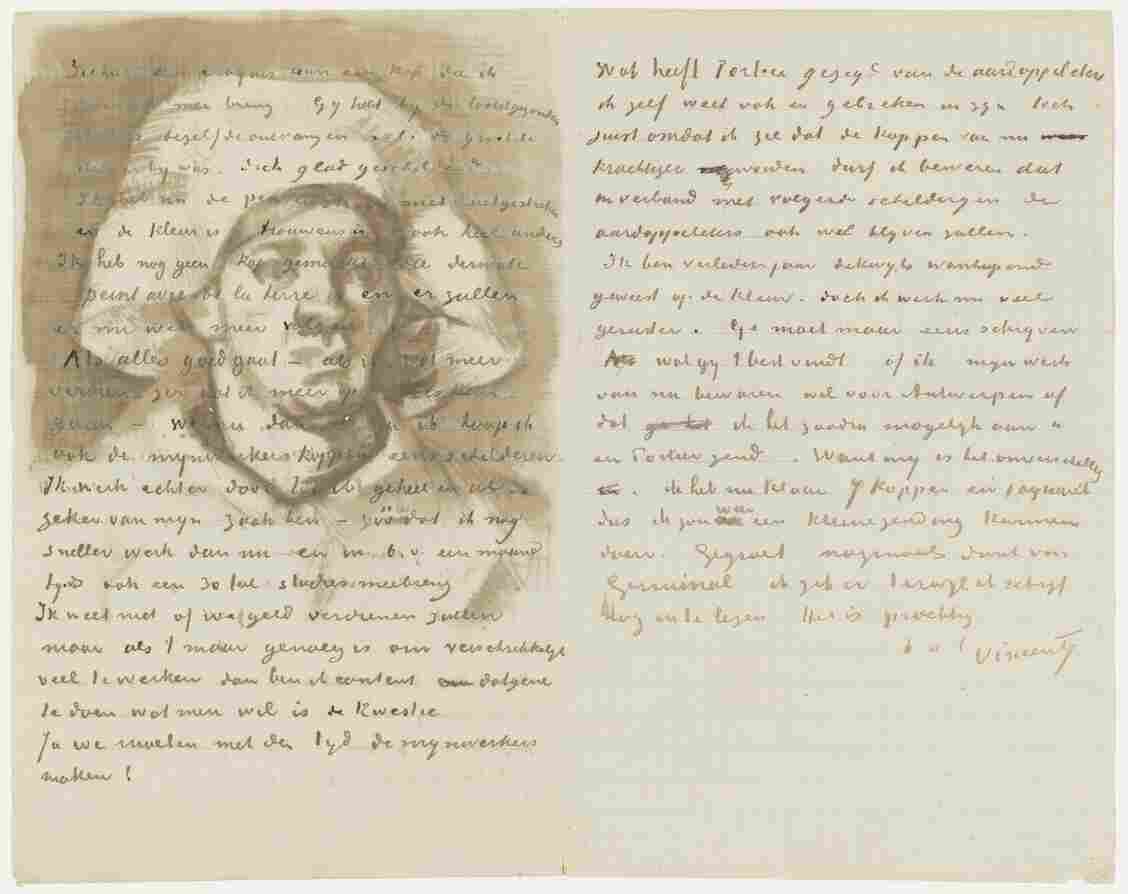 een kop die ik
mee breng Gy hebt by de
de grootste
daarby was. Dick glad geschilderd
Ik heb nu de penseelstreek niet uitgestreken
en de kleur is trouwens ook heel anders
Ik heb nog geen kop gemaakt die dermate
peint avec de la terre is en er zullen
er nu wel meer volgen
Als alles goed gaat – als ik wat meer
verdien zoo dat ik meer
gaan – welnu dan hoop ik
ook de mynwerkerskoppen eens te schilderen
Ik werk echter door tot ik geheel en al
zeker van myn zaak ben – zóódat ik nog
sneller werk dan nu en in b.v. een maand
tyd ook een 30 tal studies meebreng
Ik weet niet of we geld verdienen zullen
maar als 't maar genoeg is om verschrikkelyk
veel te werken dan ben ik content datgene
te doen wat men wil is de kwestie
Ja we moeten met der tyd de mynwerkers
maken !
Wat heeft Portier gezegd van de aardappeleters
ik zelf weet ook er gebreken in zyn doch
juist omdat ik zie dat de koppen van nu
krachtiger worden durf ik beweren dat
in verband met volgende schilderyen de
aardappeleters ook wel blyven zullen.
Ik ben verleden jaar dikwyls wanhopend
geweest op de kleur. Doch ik werk nu veel
geruster. Ge moet maar eens schryven
wat gy 't best vindt of ik myn werk
van nu bewaren wil voor Antwerpen of
dat ik het zoodra mogelyk aan u
en Portier zend. Want my is het onverschillig
. Ik heb nu klaar 7 koppen en 1 aquarel
dus ik zou wel een kleine zending kunnen
doen. Gegroet nogmaals dank voor
Germinal ik zit er terwyl ik schryf
Nog in te lezen Het is prachtig
b. à t. Vincent